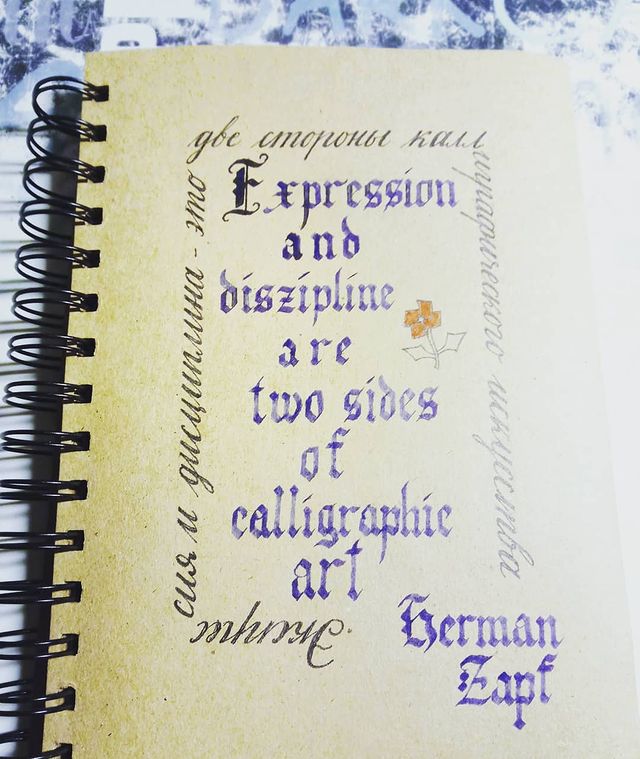 Экспрес
сия и дисциплина - это
две стороны калл
играфического искусства
Expression
and
diszipline
are
two sides
of
calligraphic
art
Herman
Zapf